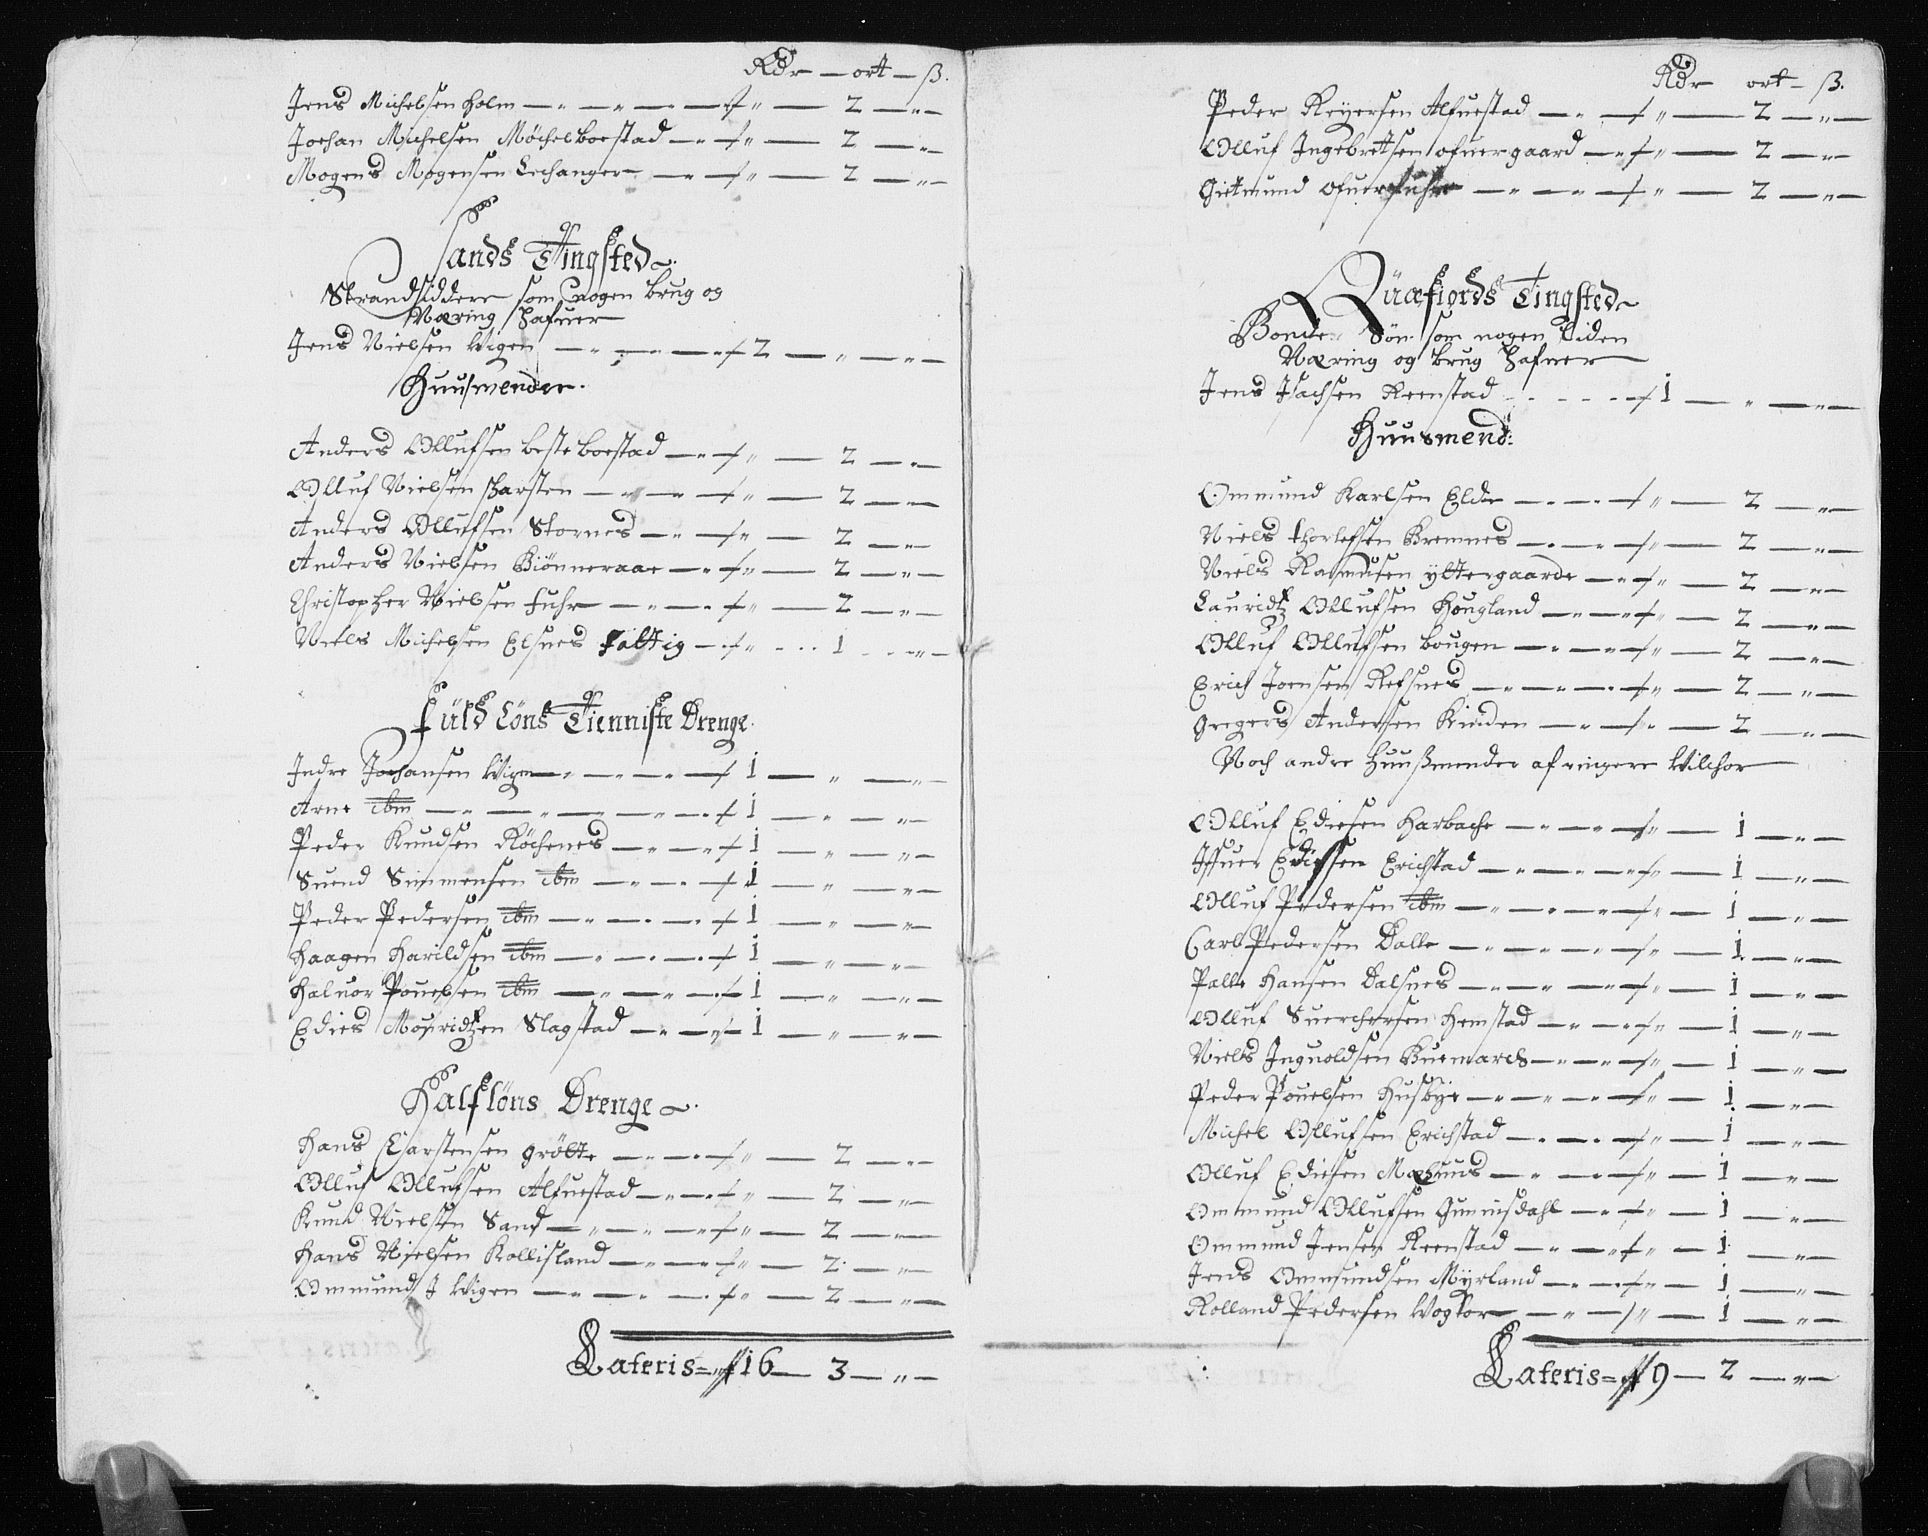 Rdr — ort — ß.
Jens Michelsen Holm — " — " — " — " — 2 — " —
Joehan Michelsen Møchelboestad — " — " — 2 — " —
Mogens Mogensen Lechanger — " — " — 2 — " —
Sands Tingsted
Strandsiddere som nogen brug og
Næring hafuer
Jens Nielsen Wigen — " — " — 2 — " — " —
Huusmender.
Anders Ollufsen besteboestad — " — " — 2 — " —
Olluf Nielsen harsten — " — " — " — 2 — " —
Anders Ollufsen Stornes — " — " — 2 — " —
Anders Nielsen Biönneraae — " — " — 2 — " —
Christopher Nielsen fuhr — " — " — 2 — " —
Niels Michelsen Elsnes fattig — " — 1 — " —
Füld Löns Tienniste Drenge.
Indre Joehansen Wigen — " — " — 1 — " — " —
Arne ibm — " — " — " — 1 — " — " —
Peder Knudsen Röchenes — " — " — 1 — " — " —
Suend Simmensen ibm — " — " — 1 — " — " —
Peder Pedersen ibm — " — " — 1 — " — " —
Haagen Harildsen ibm — " — " — 1 — " — " —
Haluor Pouelsen ibm — " — " — 1 — " — " —
Edies Mouridtzen Slagstad — " — " — 1 — " — " —
Halflöns Drenge
Hans Carstensen grötte — " — " — 2 — " —
Olluf Ollufsen Alfuestad — " — " — 2 — " —
Knud Nielsen Sand — " — " — " — 2 — " —
Hans Nielsen Kollisland — " — " — 2 — " —
Ommund J Wigen — " — " — " — 2 — " —
Lateris = 16 — 3 — " —
Rdr ort — ß.
Peder Reyersen Alfuestad — " — " — 2 — " —
Olluf Ingebrettsen ofuergaard — " — " — 2 — " —
Gietmund — " — " — " — 2 — " —
Quæfiords Tingsted
Bonde Sön som nogen liden
Næring og brug hafuer
Jens Isachsen Reenstad — 1 — " — " —
Huusmend:
Ommund Karlsen Elde — " — " — 2 — " —
Niels thorlefsen Bremnes — " — " — 2 — " —
Niels Rasmusen yttergaarde — " — " — 2 — " —
Lauridtz Ollufsen Hougland — " — " — 2 — " —
Olluf Ollufsen bougen — " — " — 2 — " —
Erich Joensen Refsnes — " — " — 2 — " —
Gregers Andersen Kinden — " — " — 2 — " —
Noch andre Huusmender af ringere Wilchor
Olluf Ediesen Harbache — " — " — 1 — " —
Iffuer Ediesen Erichstad — " — " — 1 — " —
Olluf Pedersen ibm — " — " — 1 — " —
Carl Pedersen Dalle — " — " — 1 — " —
Palle Hansen Dalsnes — " — " — 1 — " —
Olluf Suerchersen Hemstad — " — " — 1 — " —
Niels Inguoldsen Buemarck — " — " — 1 — " —
Peder Pouelsen Husbye — " — " — 1 — " —
Michel Ollufsen Erichstad — " — " — 1 — " —
Olluf Ediesen Mæhuus — " — " — 1 — " —
Ommund Ollufsen Gunnisdahl — " — " — 1 — " —
Ommund Jensen Reenstad — " — " — 1 — " —
Jens Ommundsen Myrland — " — " — 1 — " —
Rolland Pedersen — " — " — 1 — " —
Lateris = 9 — 2 — " —